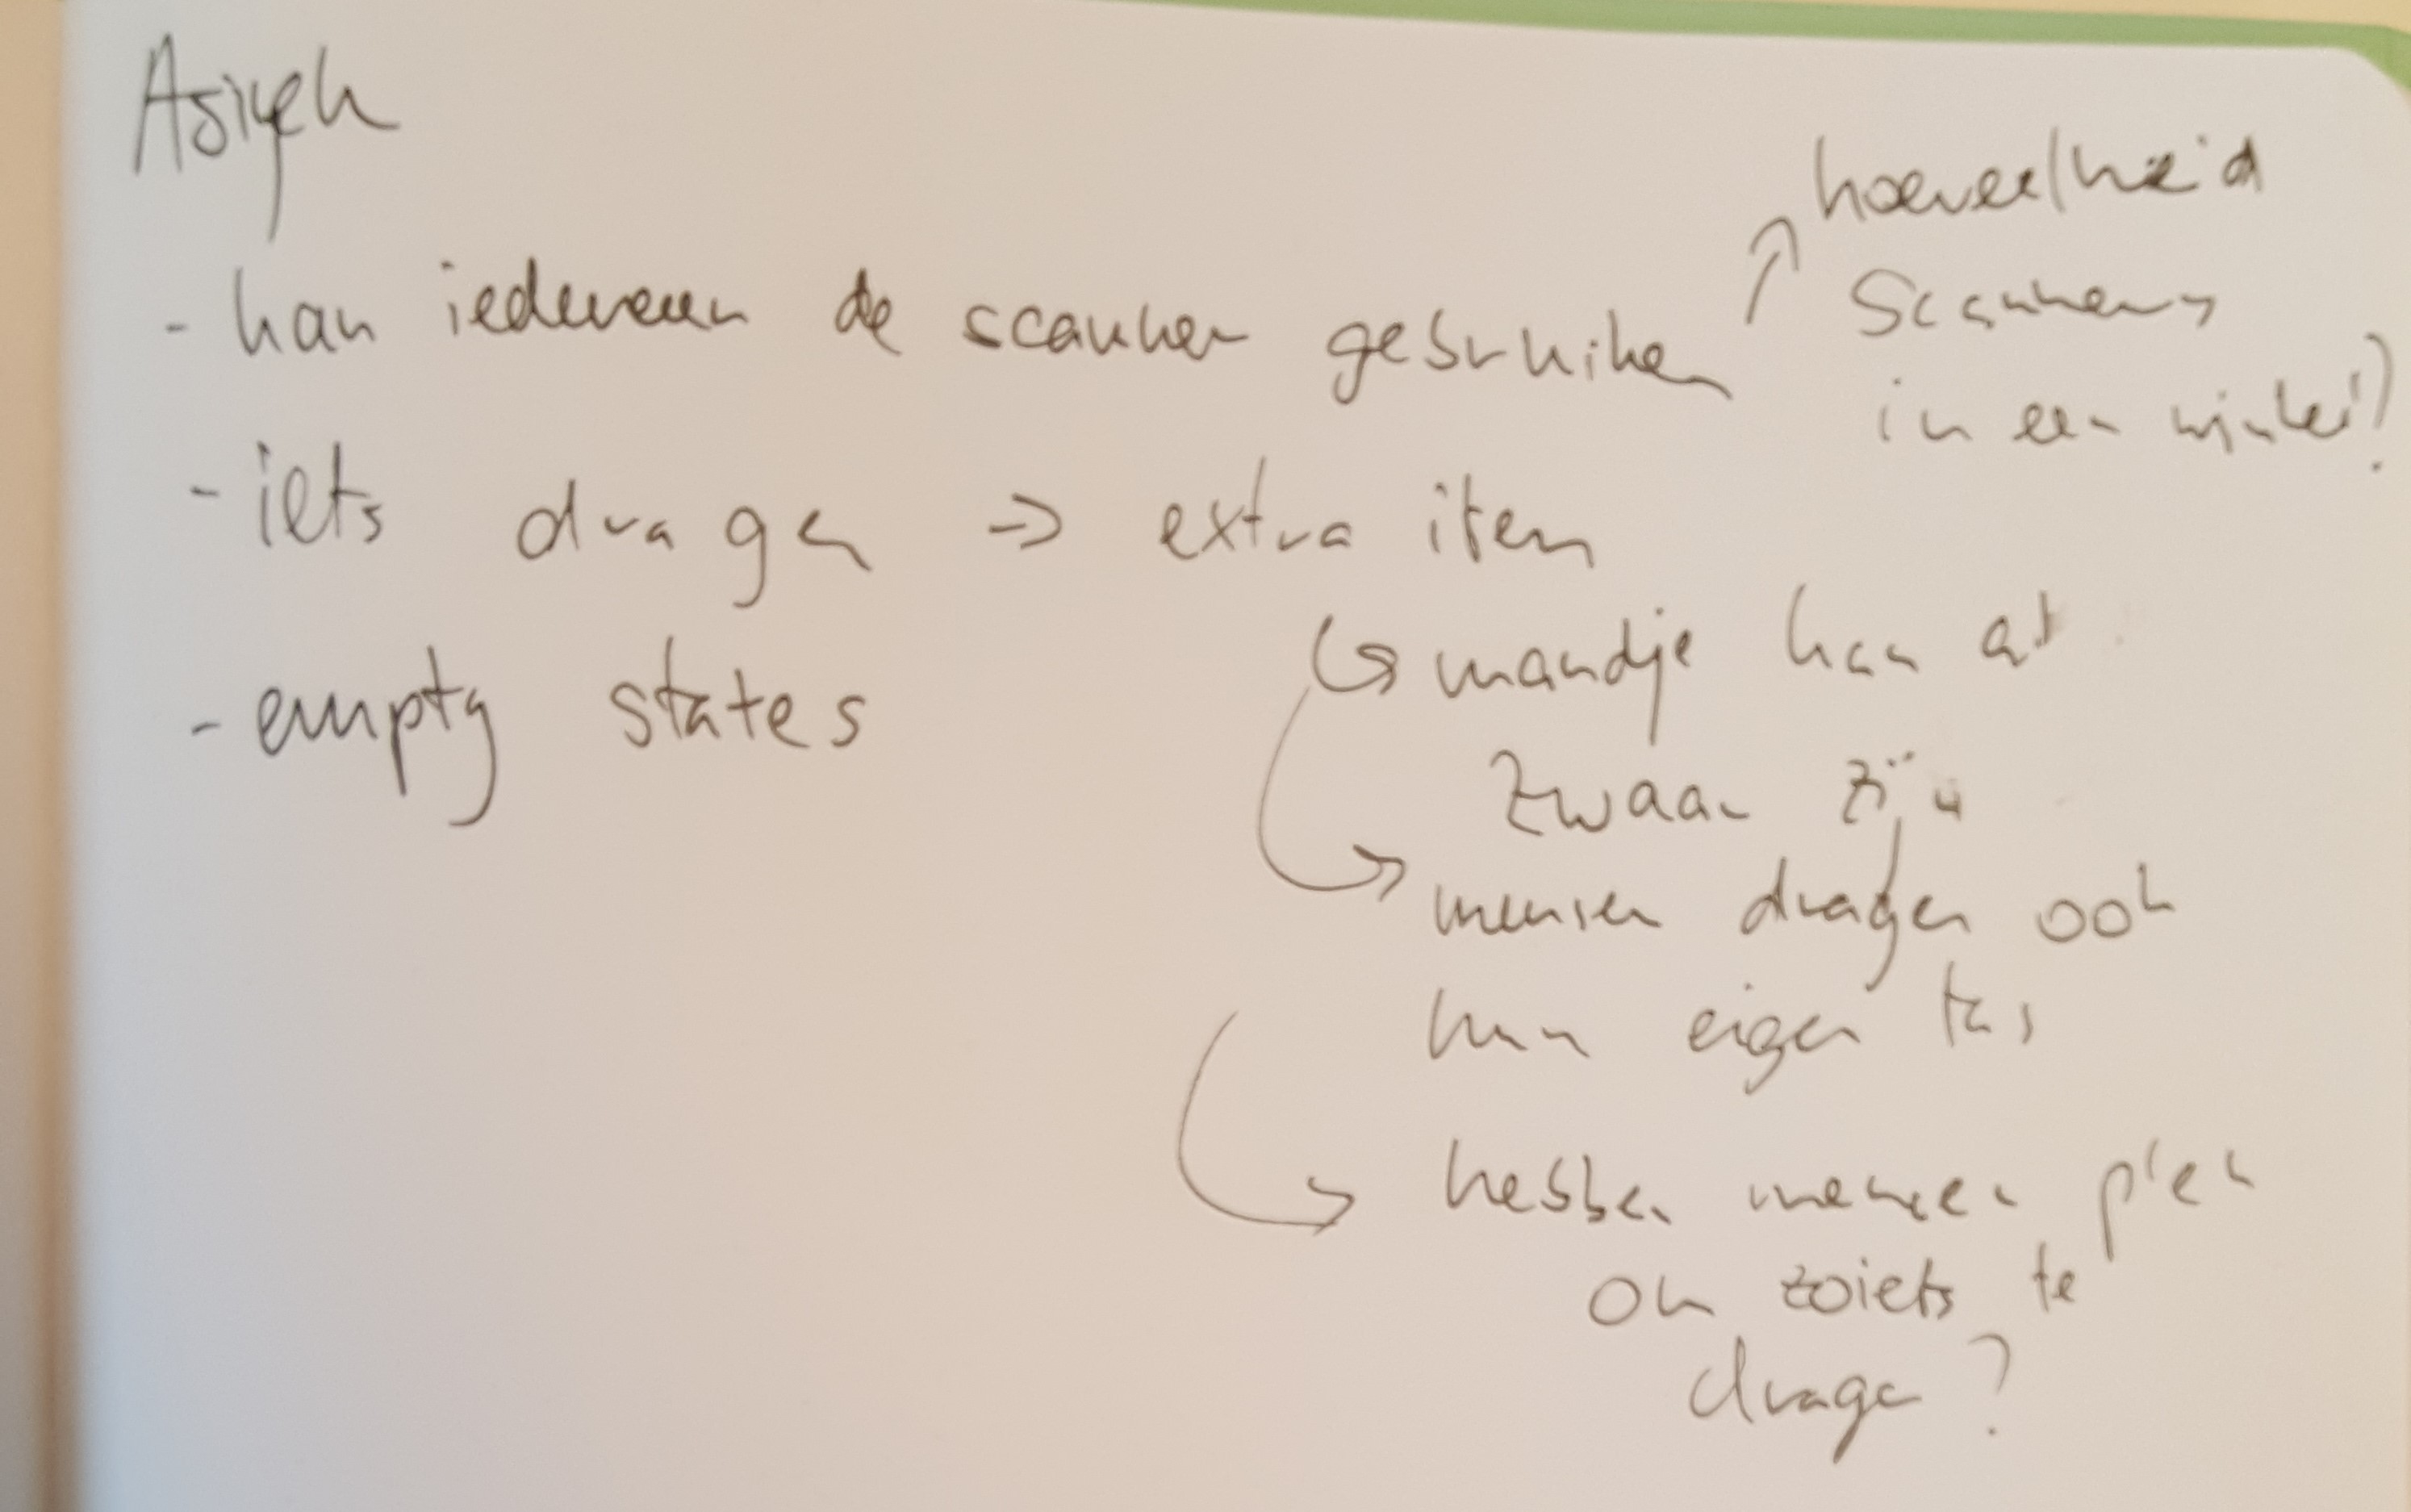 Asiyeh
- kan iedereen de scanner gebruiken
↑ hoeveelheid
scanners
in een winkel?
- iets dragen → extra item
↳ mandje kan al
zwaar zijn
→ mensen dragen ook
hun eigen tas
→ hebben mensen plek
om zoiets te
dragen?
- empty states